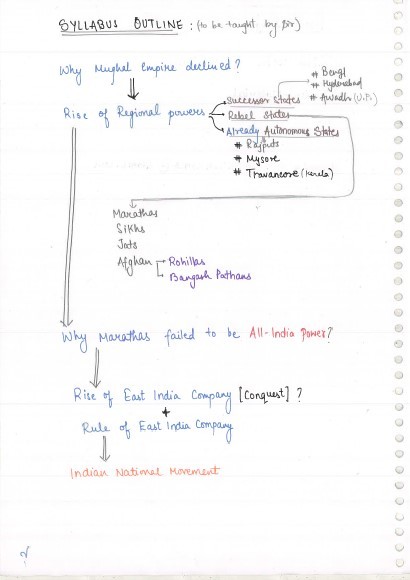 SYLLABUS OUTLINE : (to be taught by Sir)
Why Mughal Empire declined?
Rise of Regional powers
Successor States
# Bengl
# Hyderabad
# Awadh (U.P.)
Rebel States
Already Autonomous States
# Rajputs
# Mysore
# Travancore (Kerala)
Marathas
Sikhs
Jats
Afghan
Rohillas
Bangash Pathans
Why Marathas failed to be All-India Power?
Rise of East India Company [Conquest] ?
+
Rule of East India Company
Indian National Movement